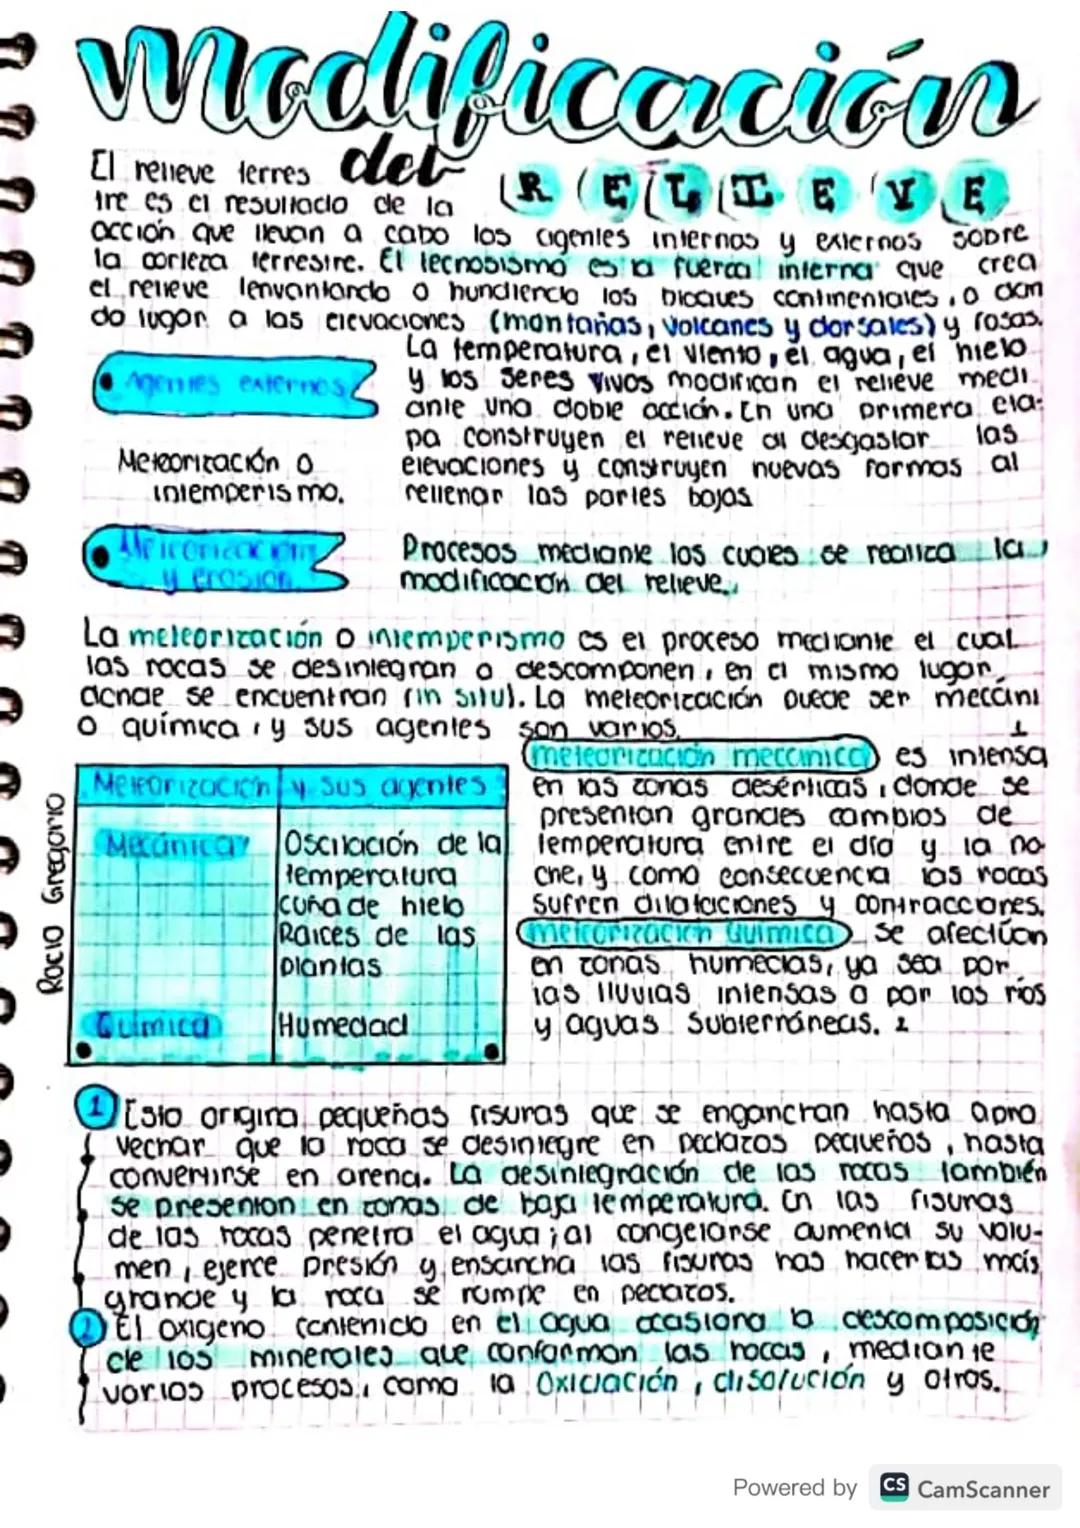 Modificación
del RELIEVE
El relieve terres
tre es el resultado de la
acción que llevan a cabo los agentes internos y externos sobre
la corteza terrestre. El tecnobismo es la fuerza interna que crea
el relieve lenvantando o hundiendo los bloques continentales, o dan
do lugar a las elevaciones (montañas, volcanes y dorsales) y fosas.
Agentes externos
La temperatura, el viento, el agua, el hielo
y los seres vivos modifican el relieve medi
ante una doble acción. En una primera eta-
pa construyen el relieve al desgastar las
elevaciones y construyen nuevas formas al
rellenar las partes bajas
Meteorización o
intemperismo.
Meteorización
y erosión
Procesos mediante los cuales se realiza la
modificación del relieve.
La meteorización o intemperismo es el proceso mediante el cual
las rocas se desintegran o descomponen, en el mismo lugar
donde se encuentran (in situ). La meteorización puede ser mecáni
o química, y sus agentes son varios.
Meteorización y sus agentes
Mecánica
Oscilación de la
temperatura
cuña de hielo
Raíces de las
plantas
Química
Humedad
Rocio Gregorio
1
meteorización mecánica es intensa
en las zonas desérticas, donde se
presentan grandes cambios de
temperatura entre el día y la no
che, y como consecuencia las rocas
sufren dilataciones y contracciones.
meteorización Química se afectúan
en zonas humedas, ya sea por
las lluvias intensas o por los ríos
y aguas subterráneas. 2
1 Esto origina pequeñas fisuras que se enganchan hasta apro
vechar que la roca se desintegre en pedazos pequeños, hasta
convertirse en arena. La desintegración de las rocas también
se presentan en zonas de baja temperatura. En las fisuras
de las rocas penetra el agua; al congelarse aumenta su volu-
men, ejerce presión y ensancha las fisuras has hacerlas más
grande y la roca se rompe en pedazos.
2 El oxigeno contenido en el agua ocasiona la descomposición
de los minerales que conforman las rocas, mediante
varios procesos, como la oxidación, disolución y otros.
Powered by CS CamScanner